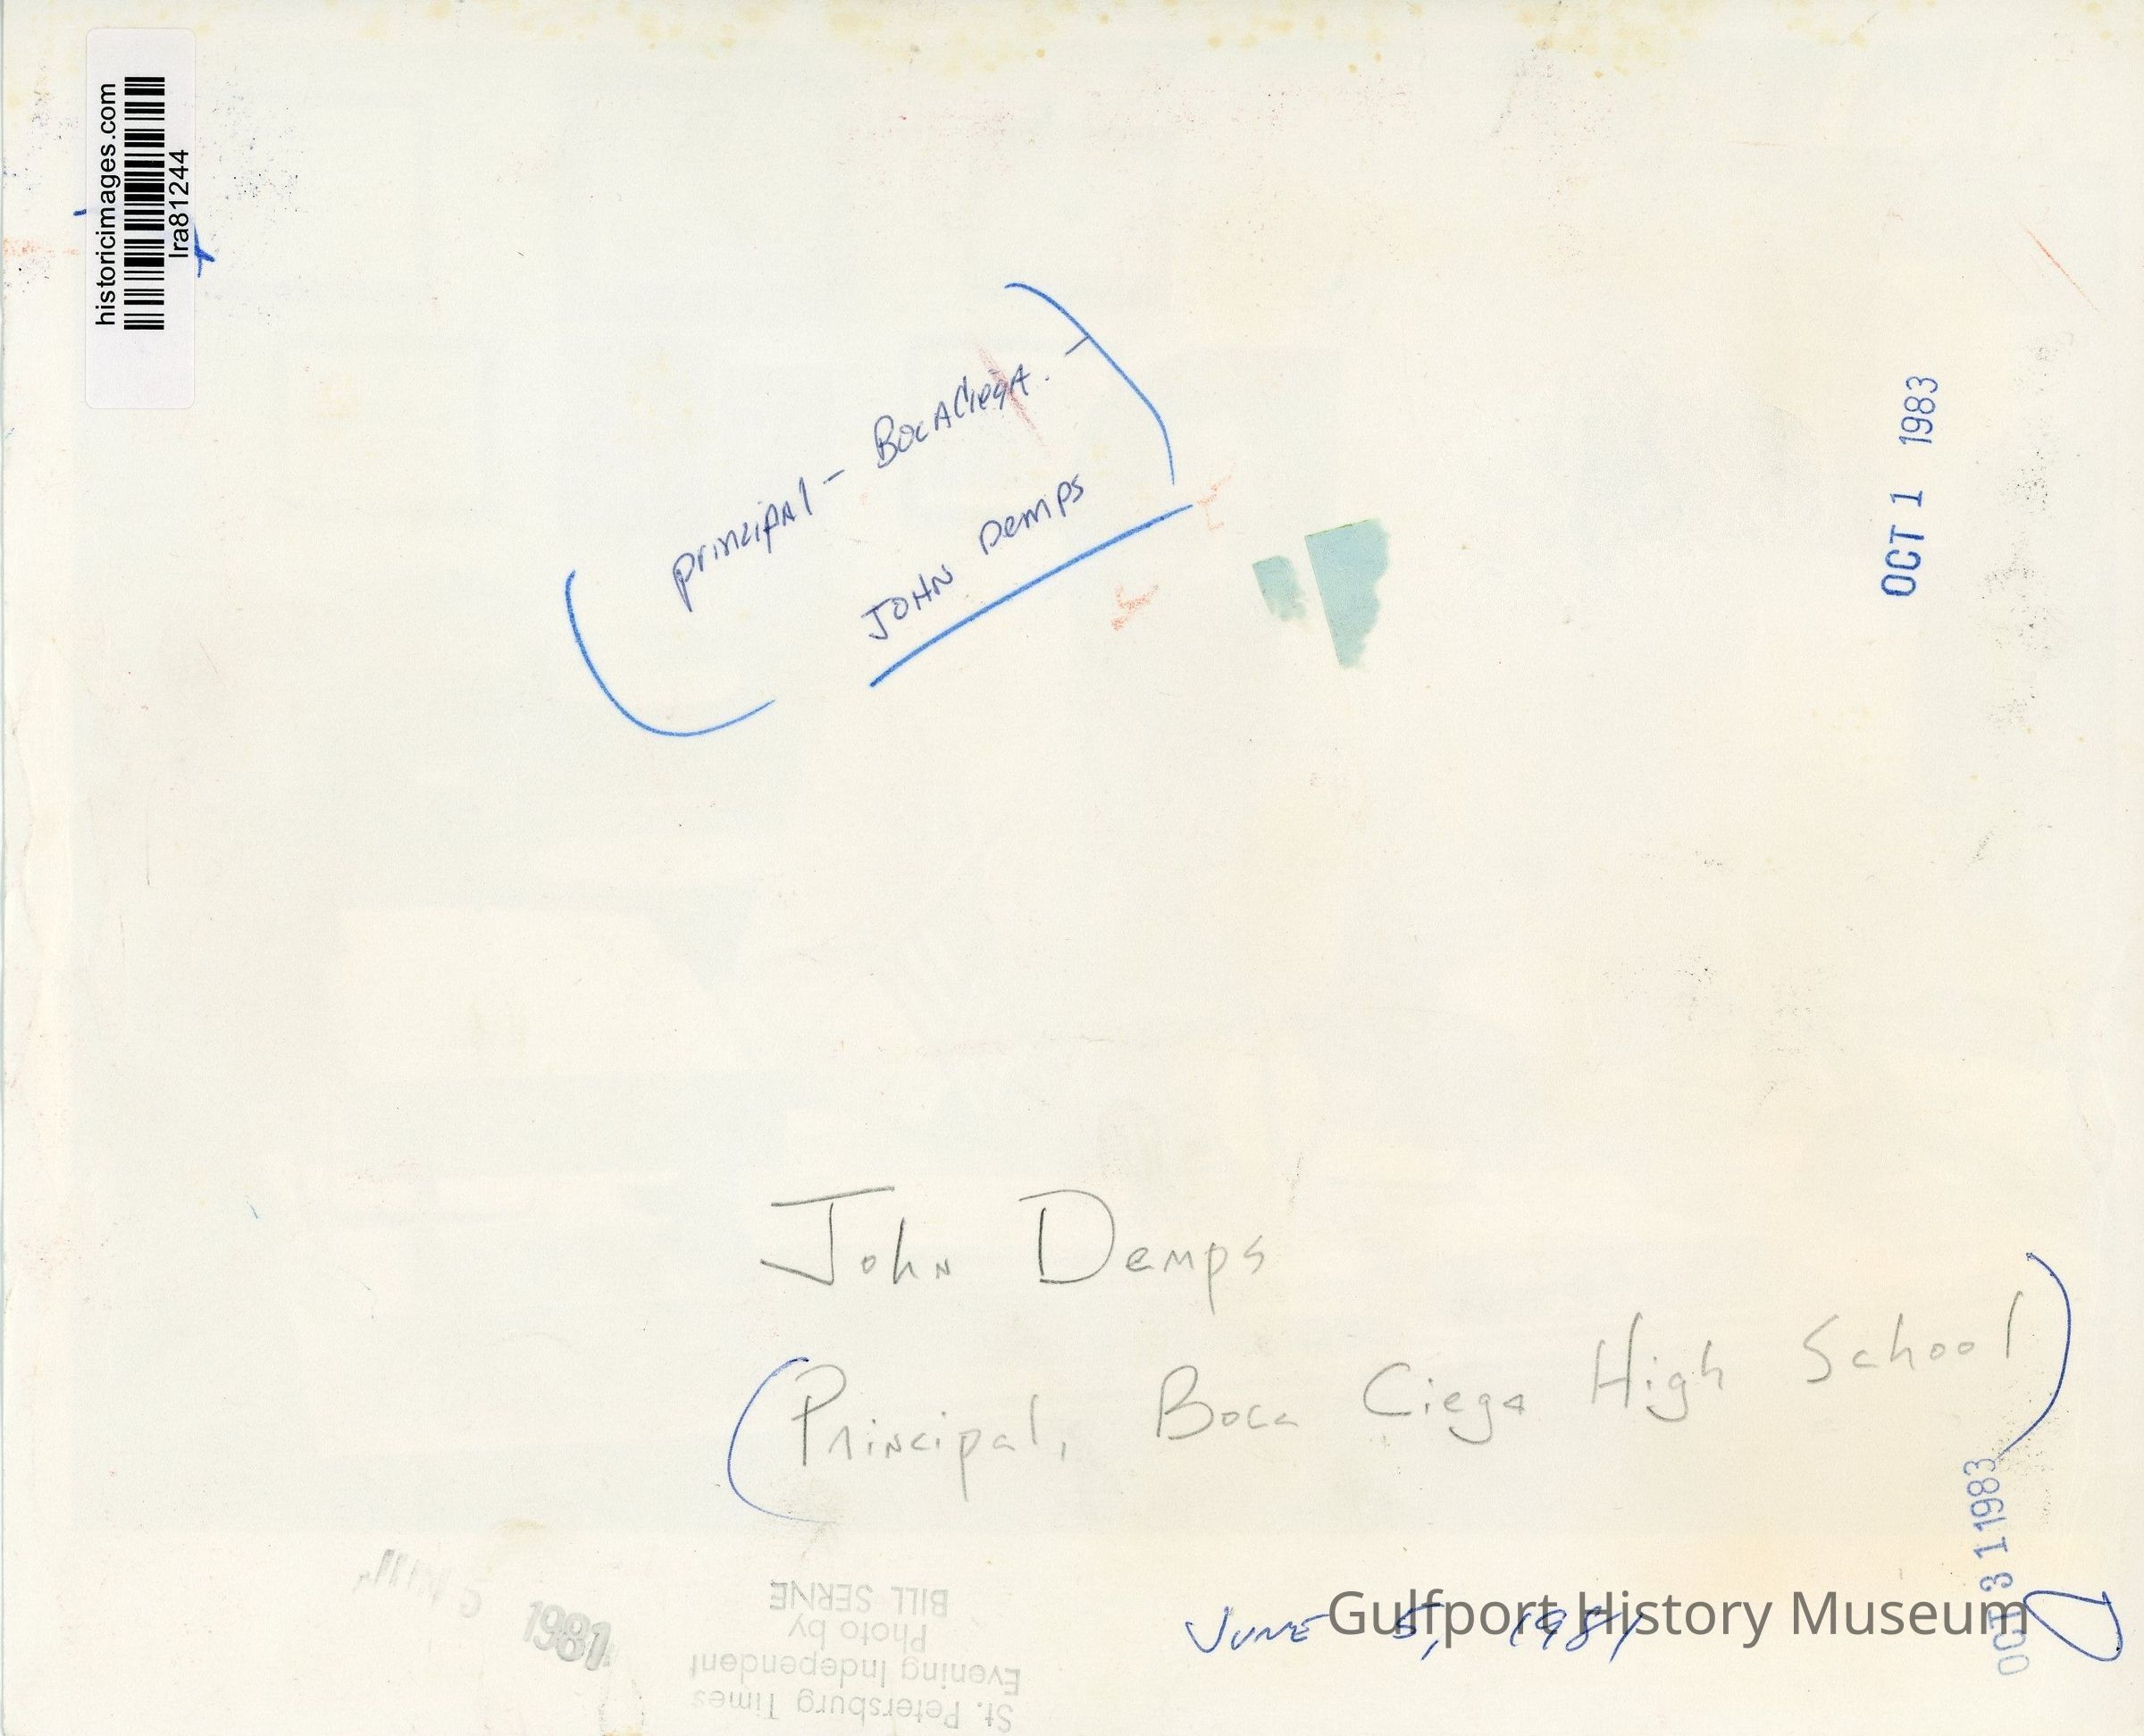 historicimages.com
lra81244
principal - BocACiegA.
JOHN Demps
OCT 1 1983
John Demps
(Principal, Boca Ciega High School)
OCT 3 1 1983
1981
St. Petersburg Times
Evening Independent
Photo by
BILL SERNE
JUNE 5, 1981
Gulfport History Museum